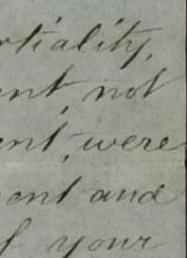 rtiality,
ent, not
ent, were
ment and
of your